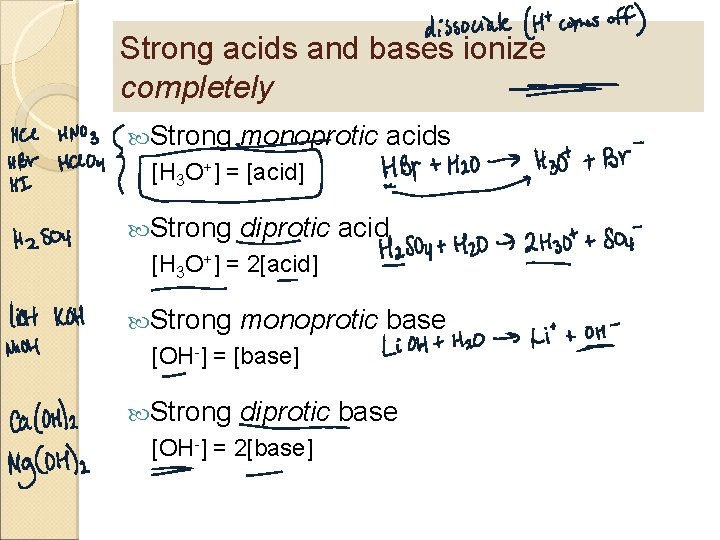 dissociate (H⁺ comes off)
Strong acids and bases ionize
completely
HCl HNO₃
HBr HClO₄
HI
Strong monoprotic acids
[H₃O⁺] = [acid]
HBr + H₂O → H₃O⁺ + Br⁻
H₂SO₄
Strong diprotic acid
H₂SO₄ + H₂O → 2H₃O⁺ + SO₄⁻
[H₃O⁺] = 2[acid]
LiOH KOH
NaOH
Strong monoprotic base
LiOH + H₂O → Li⁺ + OH⁻
[OH-] = [base]
Ca(OH)₂
Mg(OH)₂
Strong diprotic base
[OH-] = 2[base]